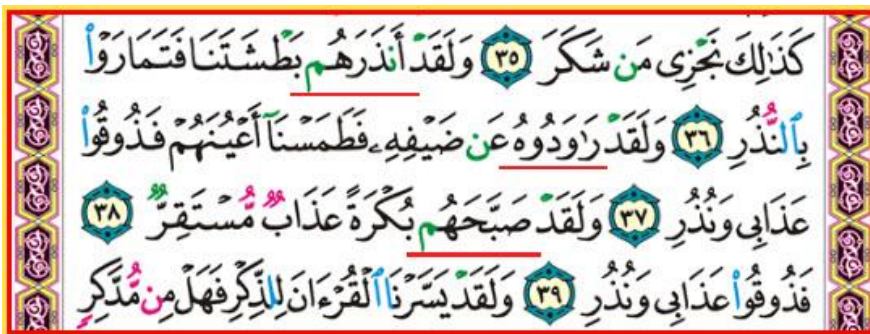 كَذَٰلِكَ نَجْزِى مَن شَكَرَ ٣٥ وَلَقَدْ أَنذَرَهُم بَطْشَتَنَا فَتَمَارَوْا۟
بِٱلنُّذُرِ ٣٦ وَلَقَدْ رَٰوَدُوهُ عَن ضَيْفِهِۦ فَطَمَسْنَآ أَعْيُنَهُمْ فَذُوقُوا۟
عَذَابِى وَنُذُرِ ٣٧ وَلَقَدْ صَبَّحَهُم بُكْرَةً عَذَابٌ مُّسْتَقِرٌّ ٣٨
فَذُوقُوا۟ عَذَابِى وَنُذُرِ ٣٩ وَلَقَدْ يَسَّرْنَا ٱلْقُرْءَانَ لِلذِّكْرِ فَهَلْ مِن مُّدَّكِرٍ